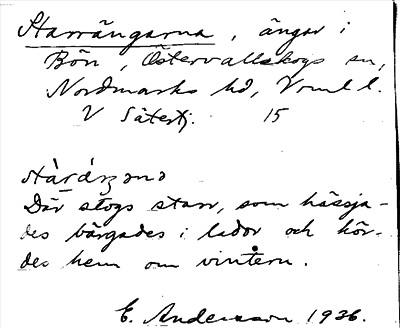 Starrängarna, ängar i
Bön, Östervallskogs sn,
Nordmarks hd, Vrml l.
V Sätertj. 15
Där slogs starr, som hässja-
des bärgades i lador och kör-
des hem om vintern.
E. Andersson 1936.